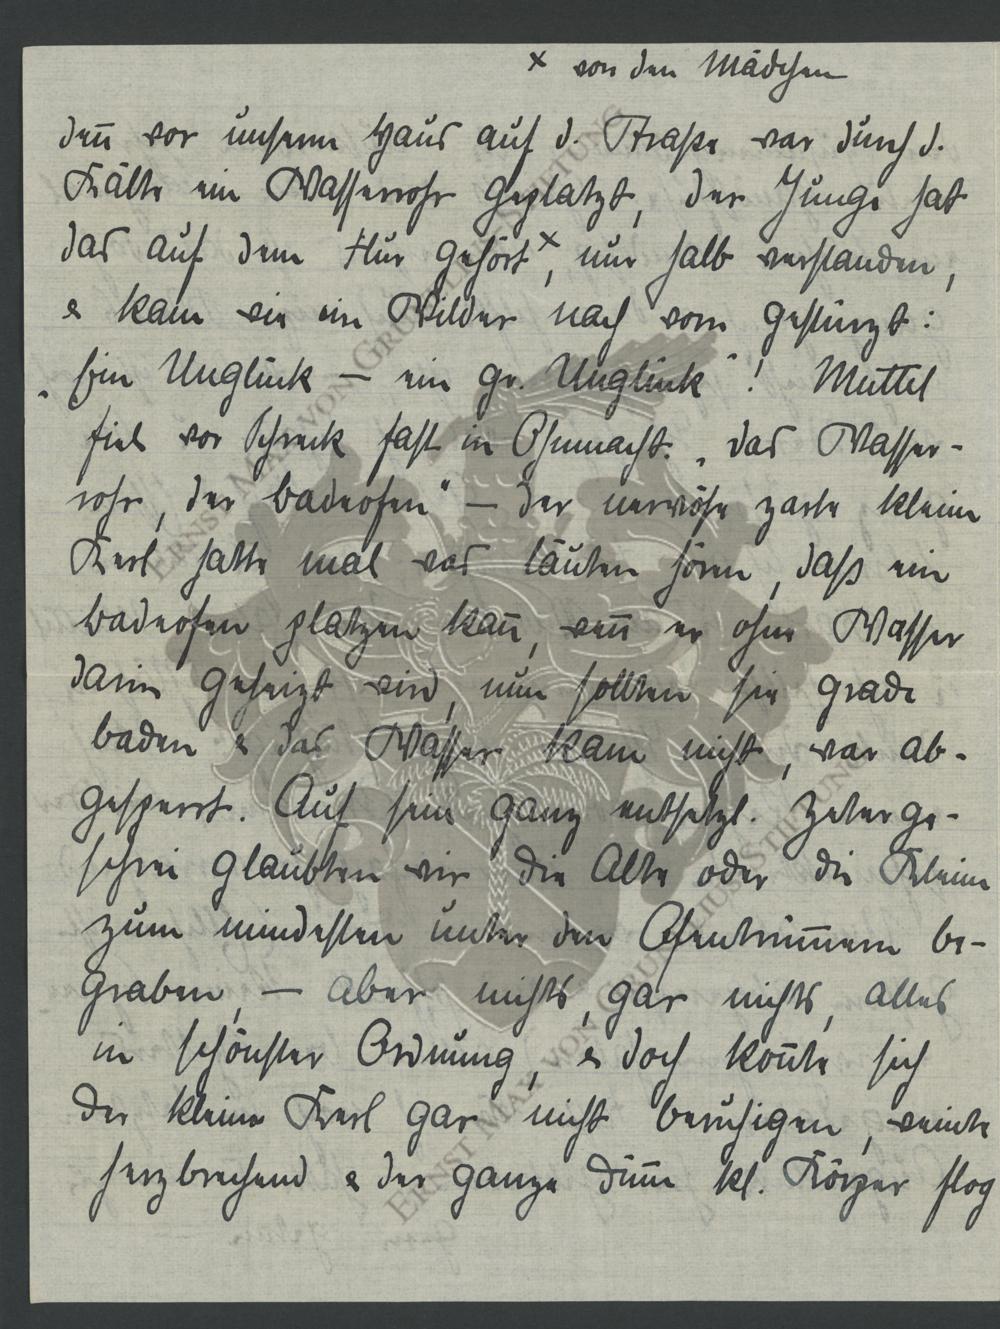 x von den Mädchen
deñ vor unserem Haus auf d. Straße war durch d.
Kälte ein Wasserrohr geplatzt, der Junge hat
das auf dem Flur gehört x, nur halb verstanden,
& kam wie ein Wilder nach vorn gestürzt:
„Ein Unglück — ein gr. Unglück"! Muttel
fiel vor Schreck fast in Ohnmacht. „das Wasser-
rohr, der Badeofen" — der nervöse zarte kleine
Kerl hatte mal was läuten hören, daß ein
Badeofen platzen kañ, weñ er ohne Wasser
darin geheizt wird, nun sollten sie grade
baden & das Wasser kam nicht, war ab-
gesperrt. Auf sein ganz entsetzl. Zeterge-
schrei glaubten wir die Alte oder die Kleine
zum mindesten unter den Ofentrüm̄ern be-
graben, — aber nichts, gar nichts, alles
in schönster Ordnung, & doch koñte sich
der kleine Kerl gar nicht beruhigen, weinte
herzbrechend & der ganze düñe kl. Körper flog
ERNST MAX VON GRUNELIUS-STIFTUNG
ERNST MAX VON GRUNELIUS-STIFTUNG